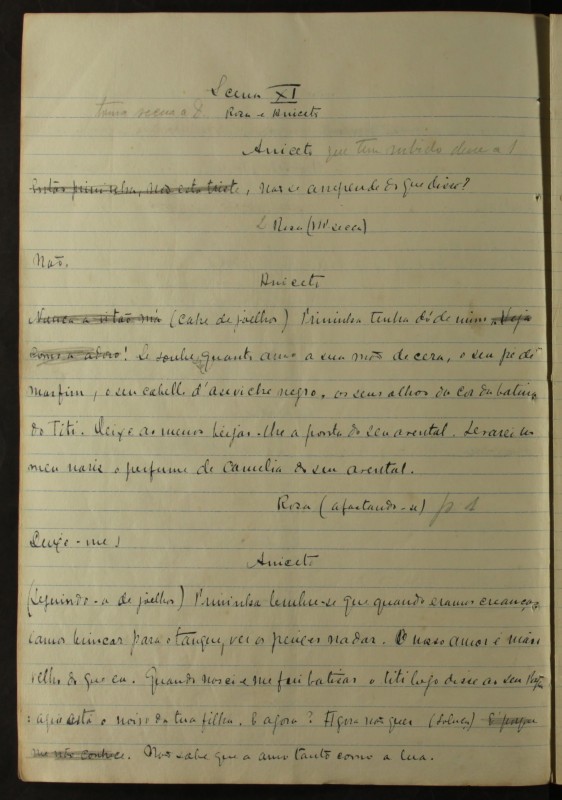 Scena XI
Rosa e Aniceto
Aniceto que tem subido desce a 1
Então priminha, não está triste, não se arrepende do que disse?
2 Rosa (1ª secca)
Não.
Aniceto
(cahe de joelhos) Priminha tenha dó de mim, Veja
como a adoro! Se soubesse quanto amo a sua mão de cera, o seu pé de
marfim, o seu cabello d'azeviche negro, os seus olhos da cor da batina
do Titi. Deixe ao menos beijar-lhe a ponta do seu avental. Levarei no
meu nariz o perfume de camelia do seu avental.
Rosa (afastando-se) p. 1
Deixe-me!
Aniceto
(Seguindo-a de joelhos) Priminha lembre-se que quando eramos creanças
iamos brincar para o tanque, ver os peixes nadar. O nosso amor é mais
velho do que eu. Quando nasci e me fui batizar o titi logo disse ao seu
: aqui está o noivo da tua filha. E agora? Agora não quer (soluça) É porque
me não conhece. Não sabe que a amo tanto como a lua.